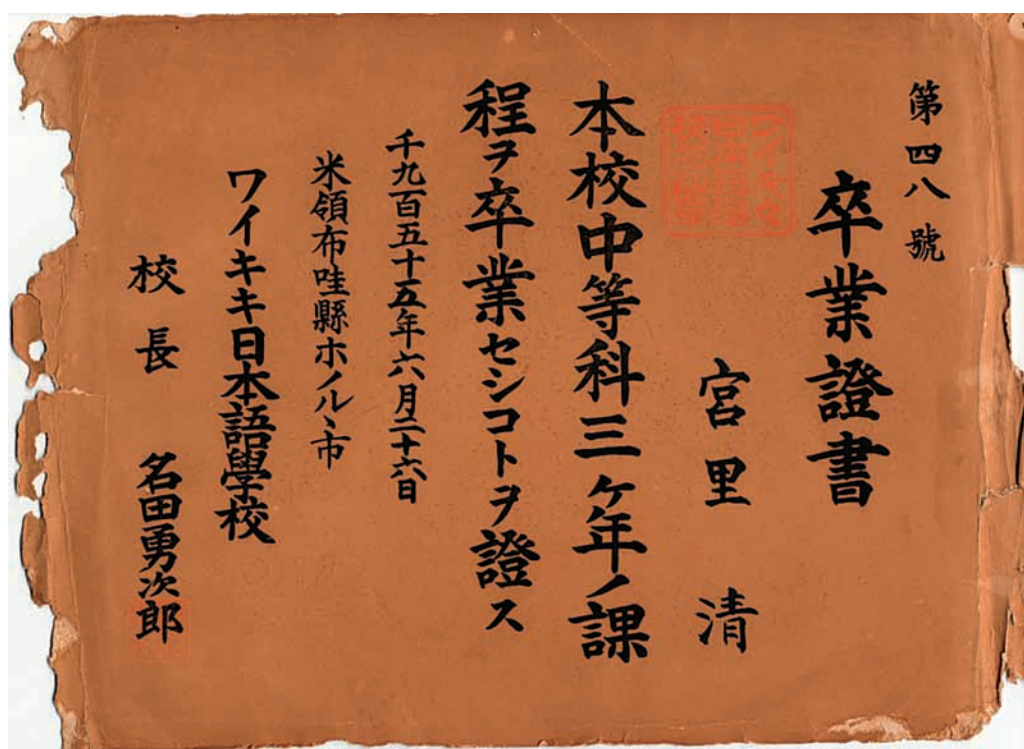 第四八號
卒業證書
宮里 清
本校中等科三ケ年ノ課
程ヲ卒業セシコトヲ證ス
千九百五十五年六月二十六日
米領布哇縣ホノルヽ市
ワイキキ日本語學校
校長 名田勇次郎